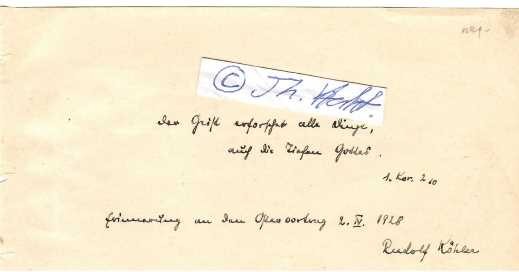 © Th.
Der Geist erforschet alle Dinge,
auch die Tiefen Gottes.
1. Kor. 2 10
Erinnerung an den 2. IV. 1928
Rudolf Köhler